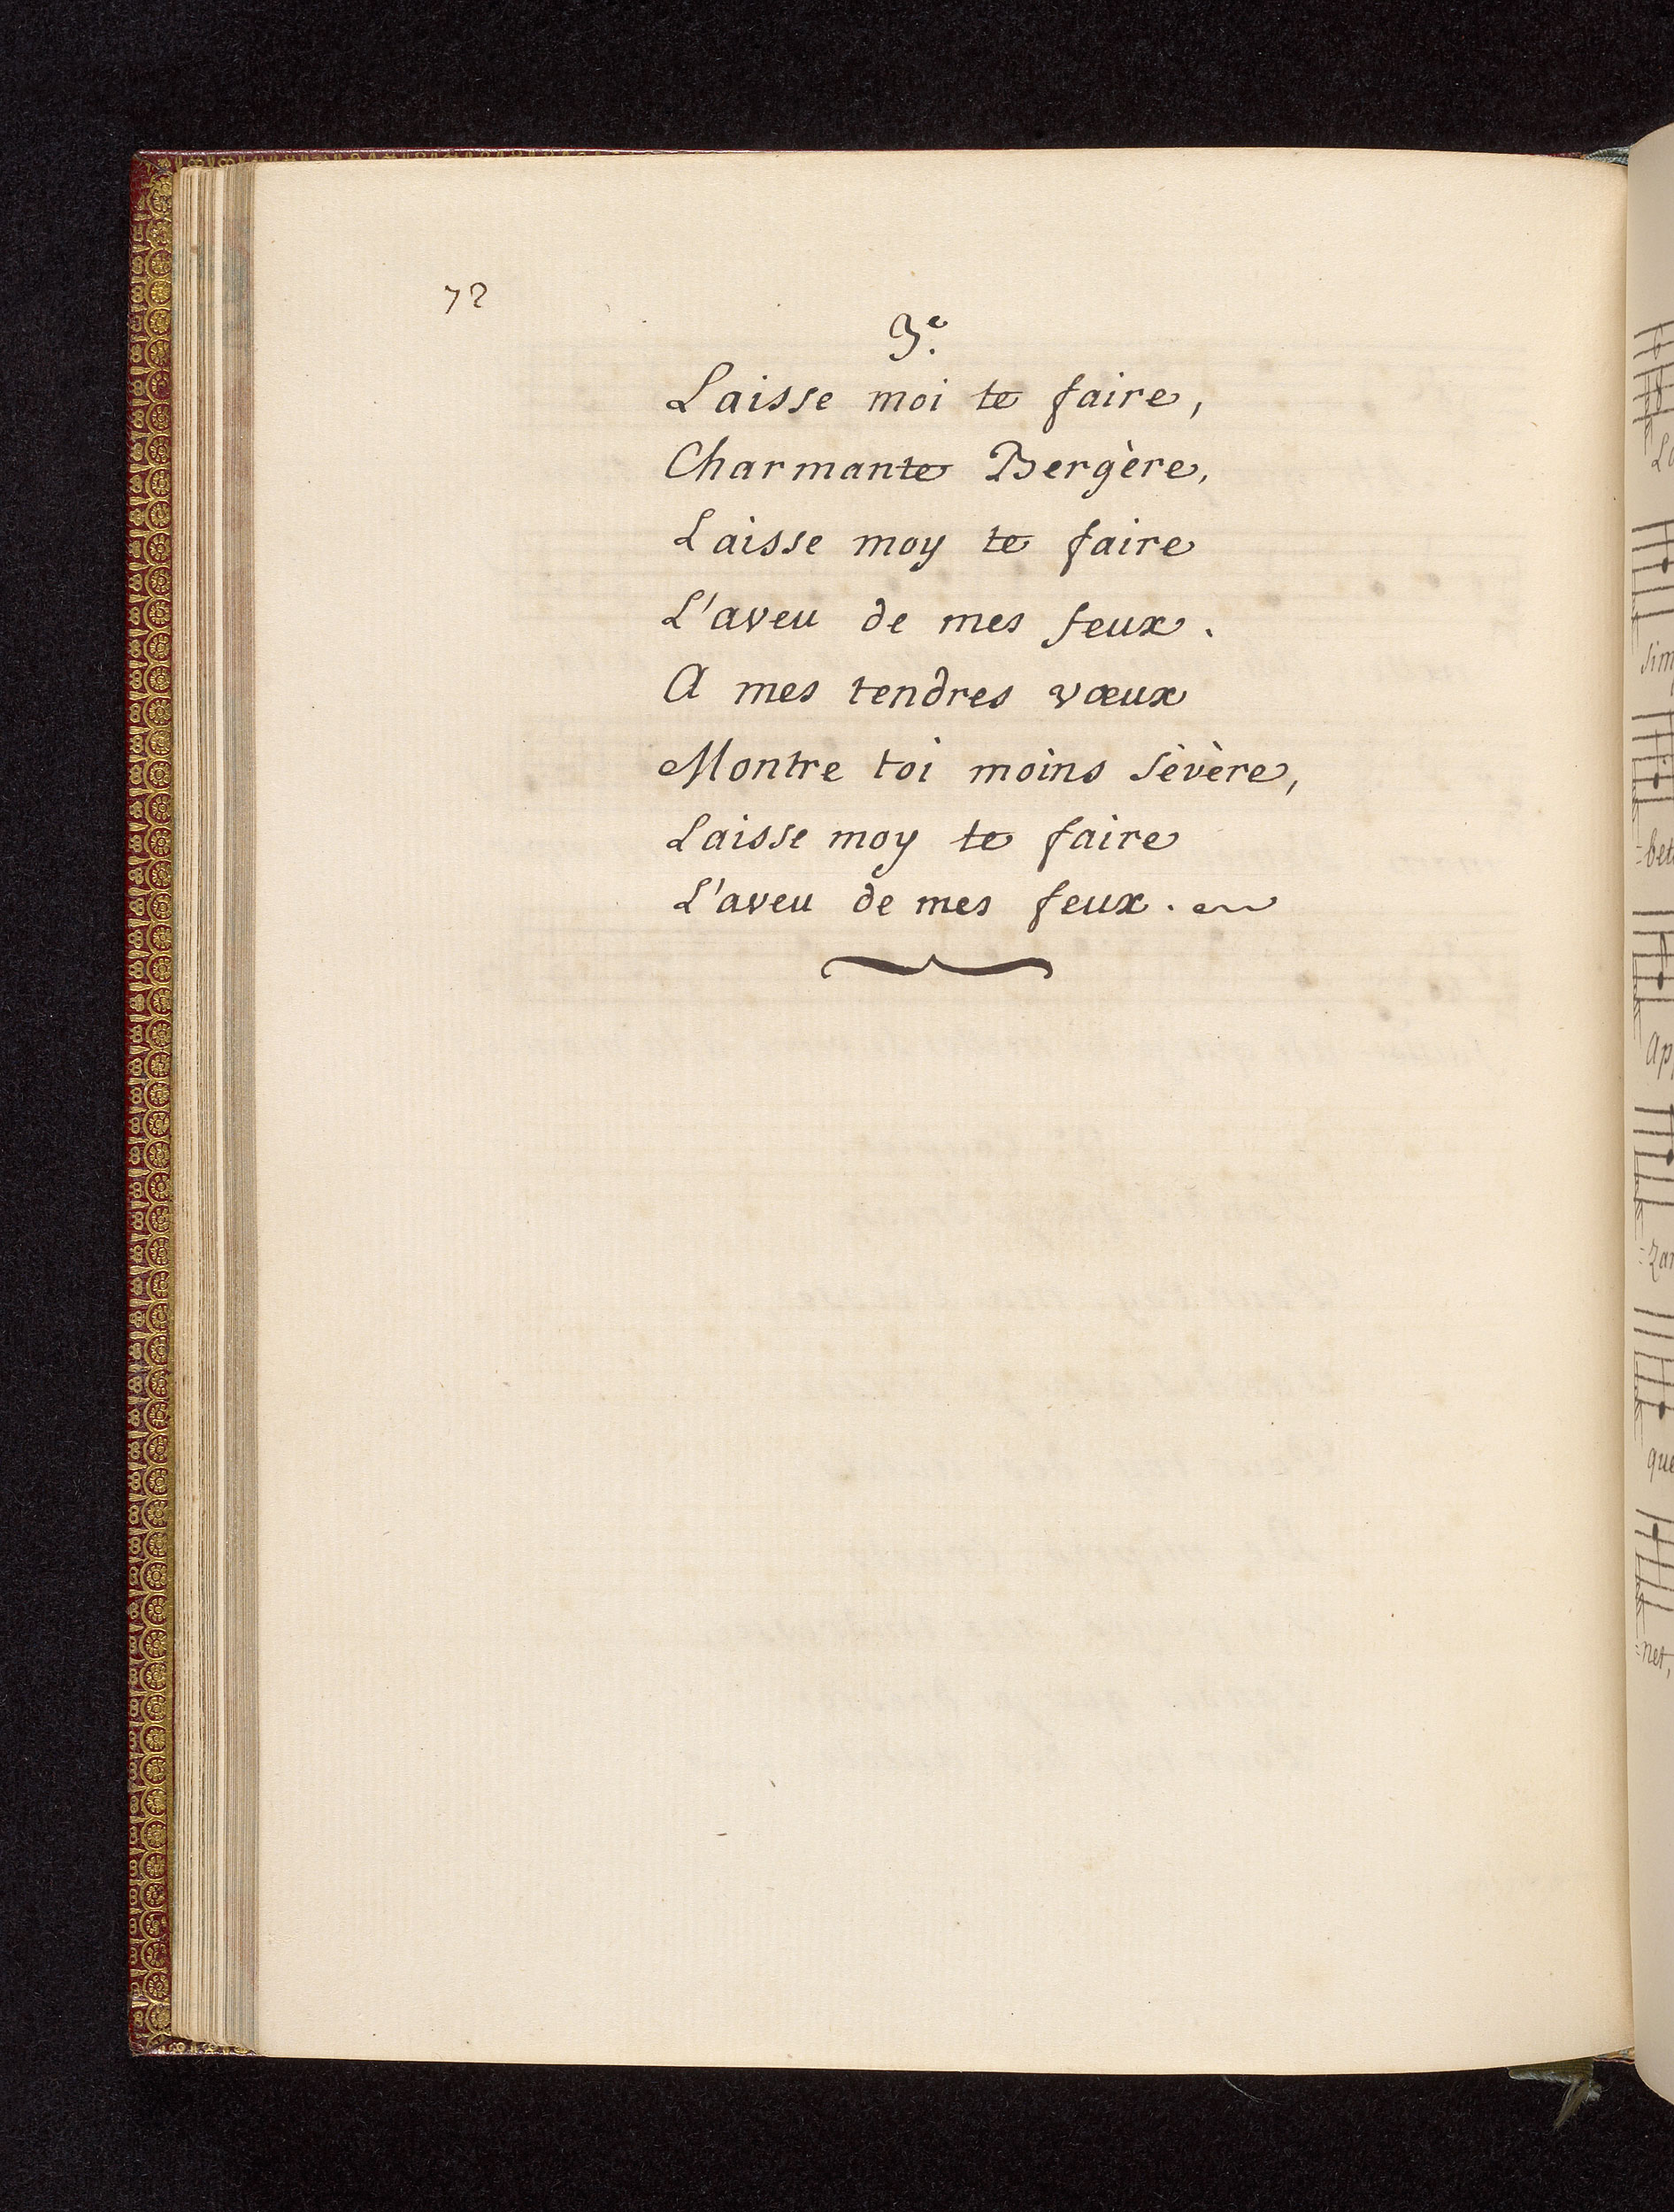 72
3.e
Laisse moi te faire,
Charmante Bergère,
Laisse moy te faire
L'aveu de mes feux.
A mes tendres vœux
Montre toi moins sévère,
Laisse moy te faire
L'aveu de mes feux.